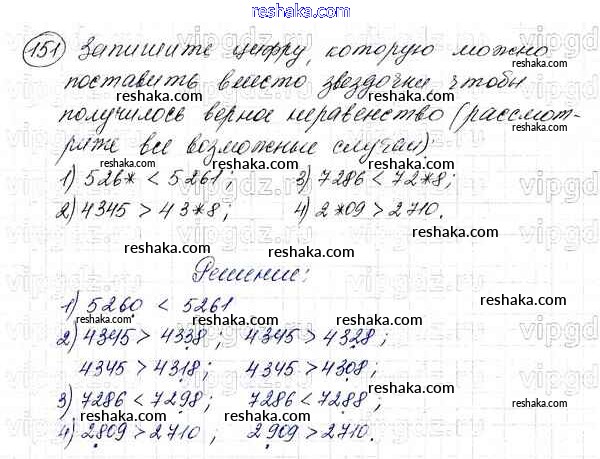 reshaka.com
151 Запишите цифру, которую можно
поставить вместо звездочки чтобы
reshaka.com reshaka.com
получилось верное неравенство (рассмот-
рите все возможные случаи).
reshaka.com reshaka.com
1) 526* < 5261; 3) 7286 < 72*8;
reshaka.com
2) 4345 > 43*8; 4) 2*09 > 2710.
reshaka.com reshaka.com
Решение:
reshaka.com
1) 5260 < 5261
reshaka.com
2) 4345 > 4338; 4345 > 4328;
reshaka.com
4345 > 4318; 4345 > 4308;
reshaka.com reshaka.com
3) 7286 < 7298; 7286 < 7288;
reshaka.com
4) 2809 > 2710; 2909 > 2710.
reshaka.com reshaka.com